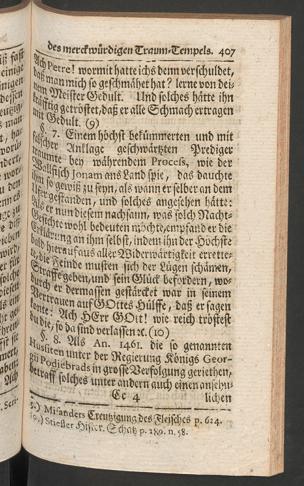 des merckwürdigen Traum-Tempels. 407
Ach Petre! wormit hatte ichs denn verschuldet,
daß man mich so geschmähet hat? lerne von dei-
nem Meister Gedult. Und solches hätte ihn
kräfftig getröstet, daß er alle Schmach ertragen
mit Gedult. (9)
§. 7. Einem höchst bekümmerten und mit
falscher Anklage geschwärtzten Prediger
traumte bey währendem Process, wie der
Wallfisch Jonam ans Land spie, das dauchte
ihm so gewiß zu seyn, als wann er selber an dem
Ufer gestanden, und solches angesehen hätte:
Als er nun diesem nachsann, was solch Nacht-
Gesichte wohl bedeuten möchte, empfand er die
Erfüllung an ihm selbst, indem ihn der Höchste
bald hierauf aus aller Widerwärtigkeit errette-
te, die Feinde musten sich der Lügen schämen,
Straffe geben, und sein Glück befördern, wo-
durch er dermassen gestärcket war in seinem
Vertrauen auf GOttes Hülffe, daß er sagen
konte: Ach HErr GOtt! wie reich tröstest
du die, so da sind verlassen rc. (10)
§. 8. Als An. 1461. die so genannten
Hussiten unter der Regierung Königs Geor-
gii Podiebrads in grosse Verfolgung geriethen,
betraff solches unter andern auch einen ansehn-
Cc 4 lichen
Misanders Creutzigung des Fleisches p. 614.
Stiefler Histor. Schatz p. 189. n. 58.